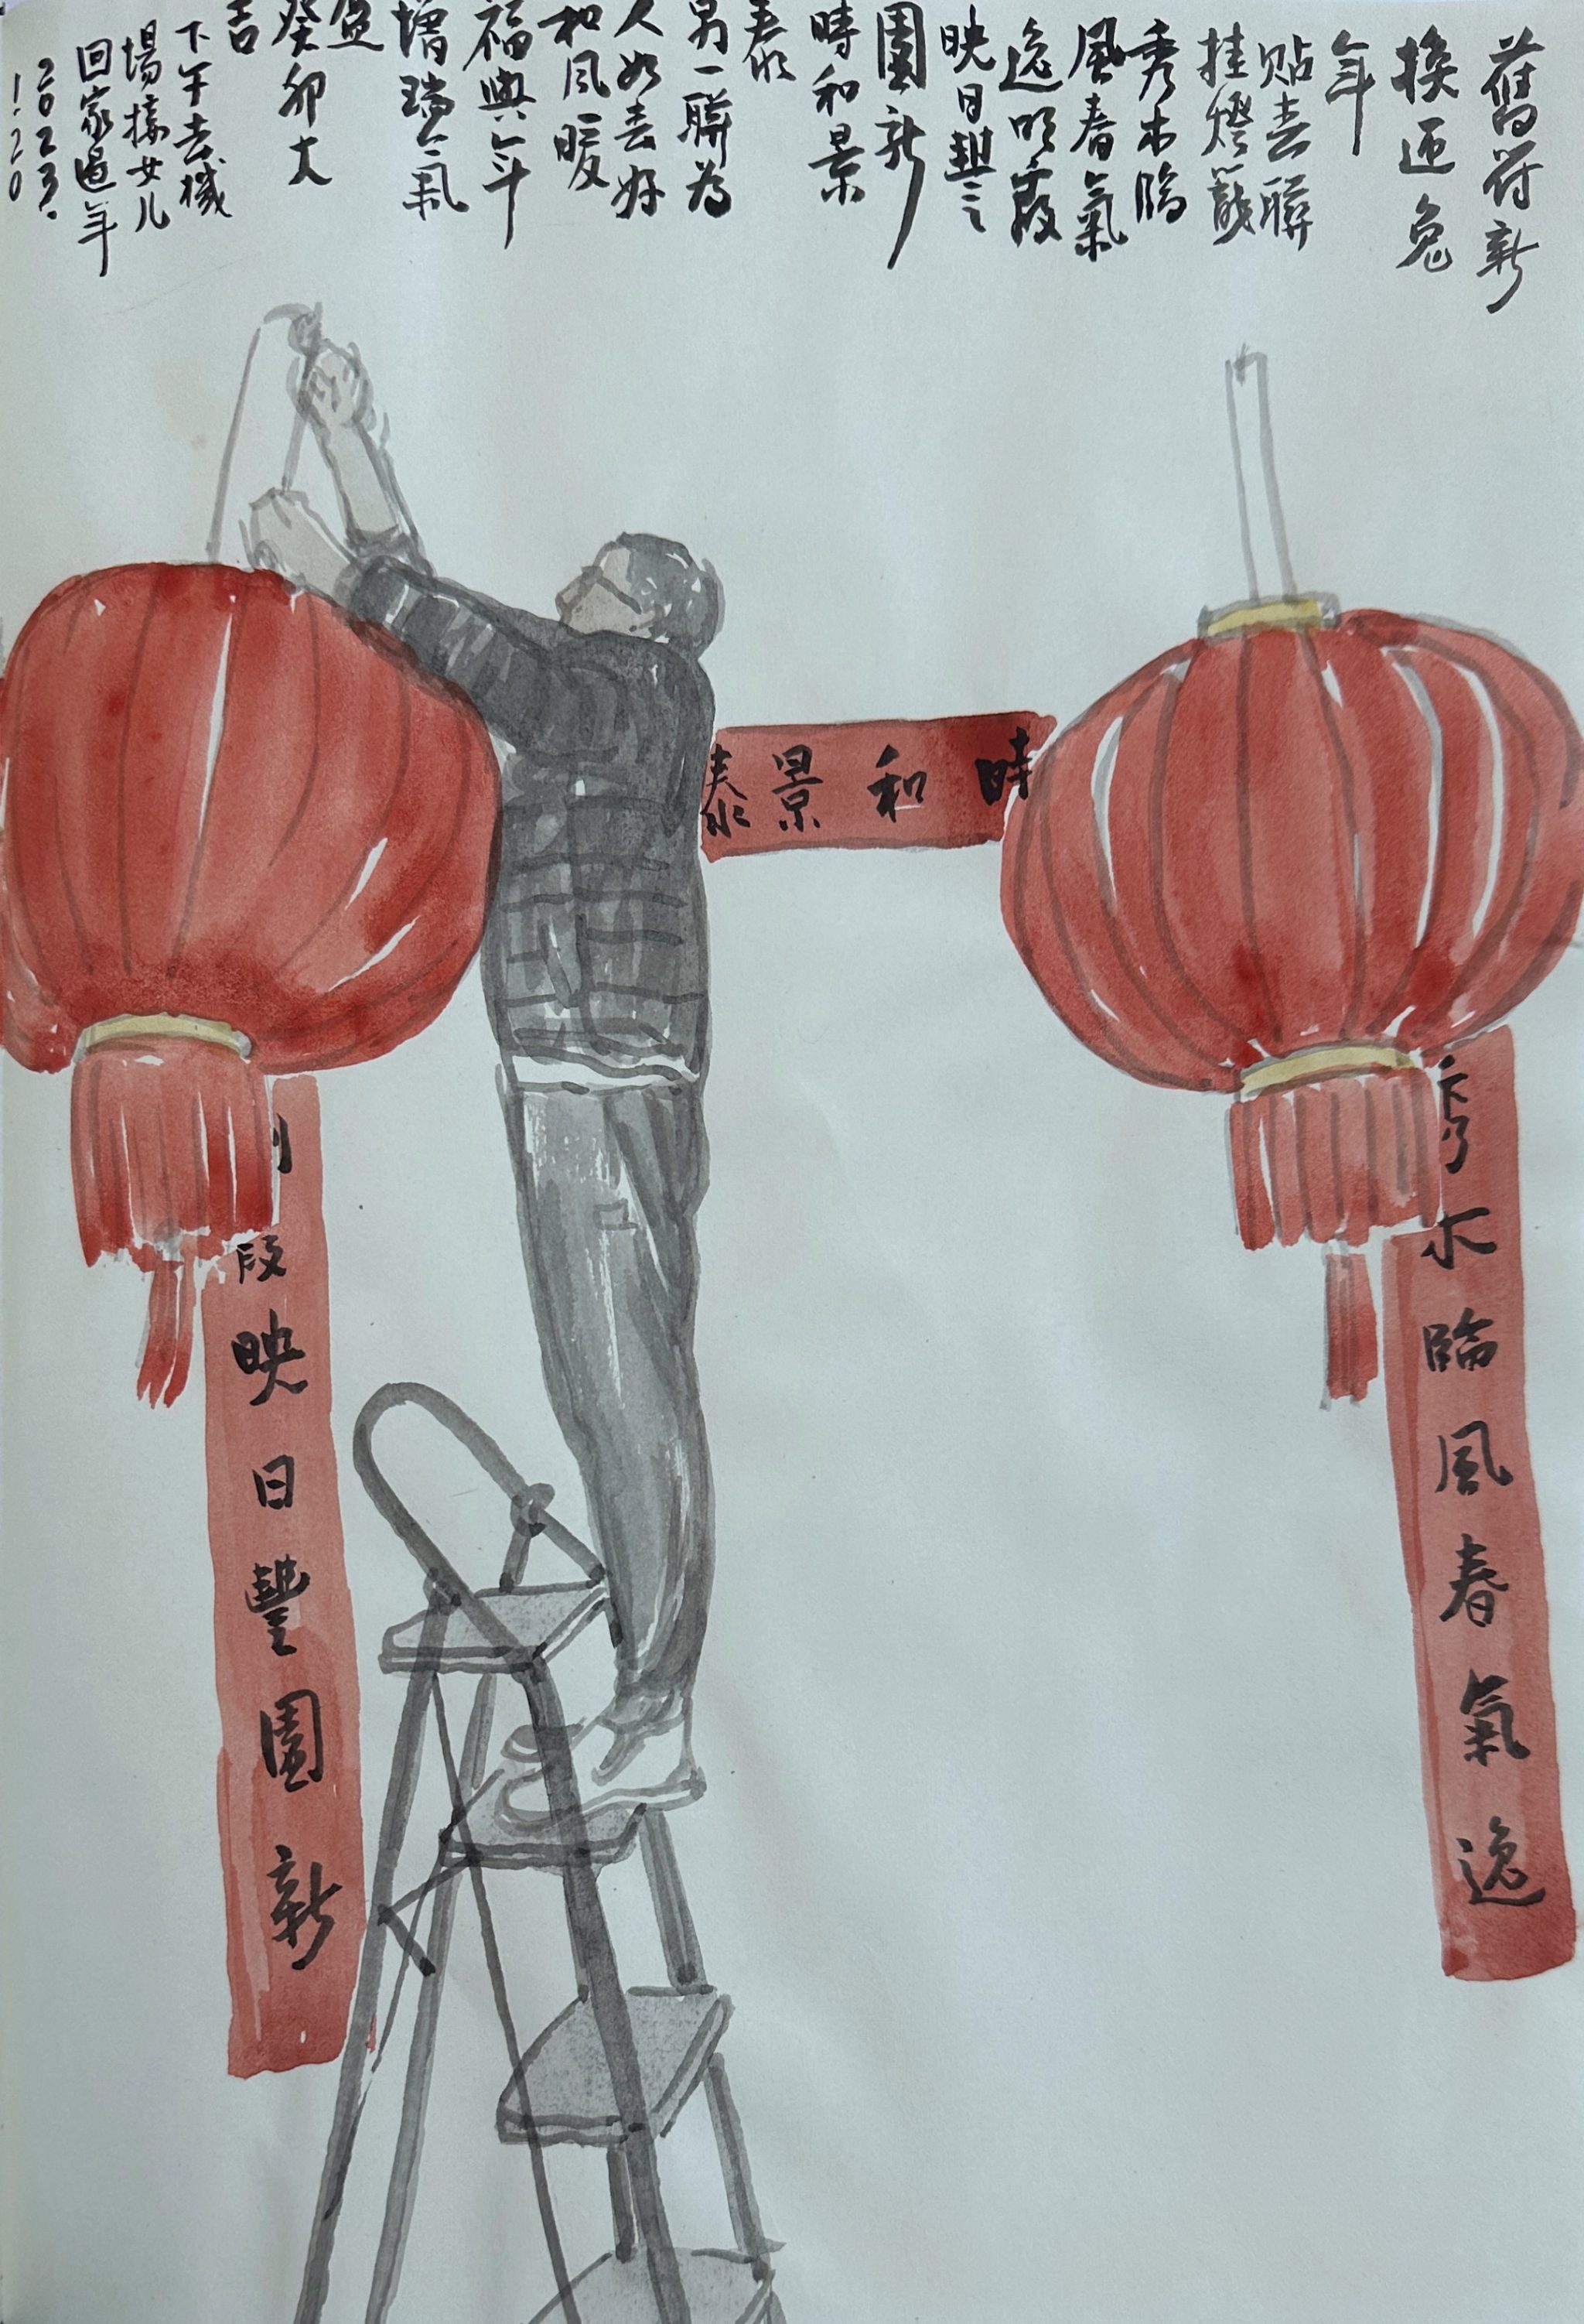 舊符新
換迎兔
年
貼春聯
挂燈籠
秀木臨
風春氣
逸明霞
映日豐
園新
時和景
泰
另一聯為
人如春好
和風暖
福與年
增瑞氣
盈
癸卯大
吉
下午去機
場接女儿
回家過年
2023.
1.20
時和景泰
秀木臨風春氣逸
映日豐園新